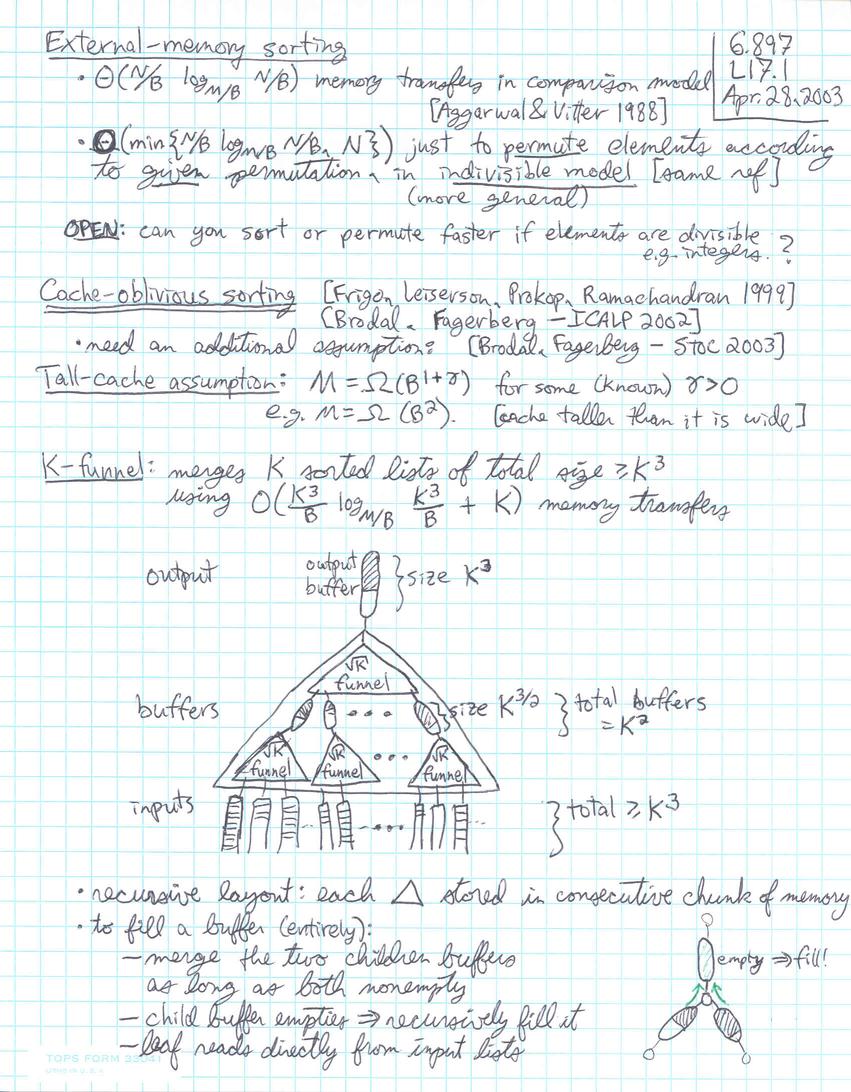 External-memory sorting
6.897
L17.1
Apr. 28, 2003
• Θ(N/B log_{M/B} N/B) memory transfers in comparison model
[Aggarwal & Vitter 1988]
• Θ(min{N/B log_{M/B} N/B, N}) just to permute elements according
to given permutation, in indivisible model [same ref]
(more general)
OPEN: can you sort or permute faster if elements are divisible
e.g. integers. ?
Cache-oblivious sorting [Frigo, Leiserson, Prokop, Ramachandran 1999]
[Brodal, Fagerberg – ICALP 2002]
• need an additional assumption: [Brodal, Fagerberg – STOC 2003]
Tall-cache assumption: M = Ω(B^{1+γ}) for some (known) γ>0
e.g. M = Ω(B²). [cache taller than it is wide]
K-funnel: merges K sorted lists of total size ≥ K³
using O(K³/B log_{M/B} K³/B + K) memory transfers
output
output
buffer
} size K³
√K
funnel
buffers
} size K^{3/2}
} total buffers
= K²
√K
funnel
√K
funnel
√K
funnel
inputs
} total ≥ K³
• recursive layout: each △ stored in consecutive chunk of memory
• to fill a buffer (entirely):
– merge the two children buffers
as long as both nonempty
– child buffer empties ⇒ recursively fill it
– leaf reads directly from input lists
empty ⇒ fill!
TOPS FORM